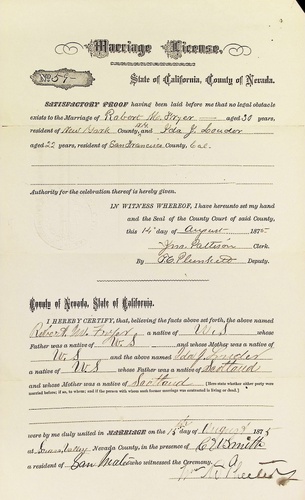 Marriage License.
No. 59
State of California, County of Nevada.
SATISFACTORY PROOF having been laid before me that no legal obstacle
exists to the Marriage of Robert M. Fryer aged 30 years,
resident of New York County, and Ida J. Louder
aged 22 years, resident of San Francisco County, Cal.
Authority for the celebration thereof is hereby given.
IN WITNESS WHEREOF, I have hereunto set my hand
and the Seal of the County Court of said County,
this 14th day of August 1875
Jno. Pattison Clerk.
By Deputy.
County of Nevada, State of California.
I HEREBY CERTIFY, that, believing the facts above set forth, the above named
Robert M. Fryer a native of U.S whose
Father was a native of U.S and whose Mother was a native of
U.S and the above named Ida J.
a native of U.S whose Father was a native of Scotland
and whose Mother was a native of Scotland (Here state whether either party were married
before; if so, to whom; and if the person with whom such former marriage was contracted is dead or divorced.)
were by me duly united in MARRIAGE on the day of August 1875
in Grass Valley Nevada County, in the presence of Smith
a resident of San Mateo who witnessed the Ceremony.